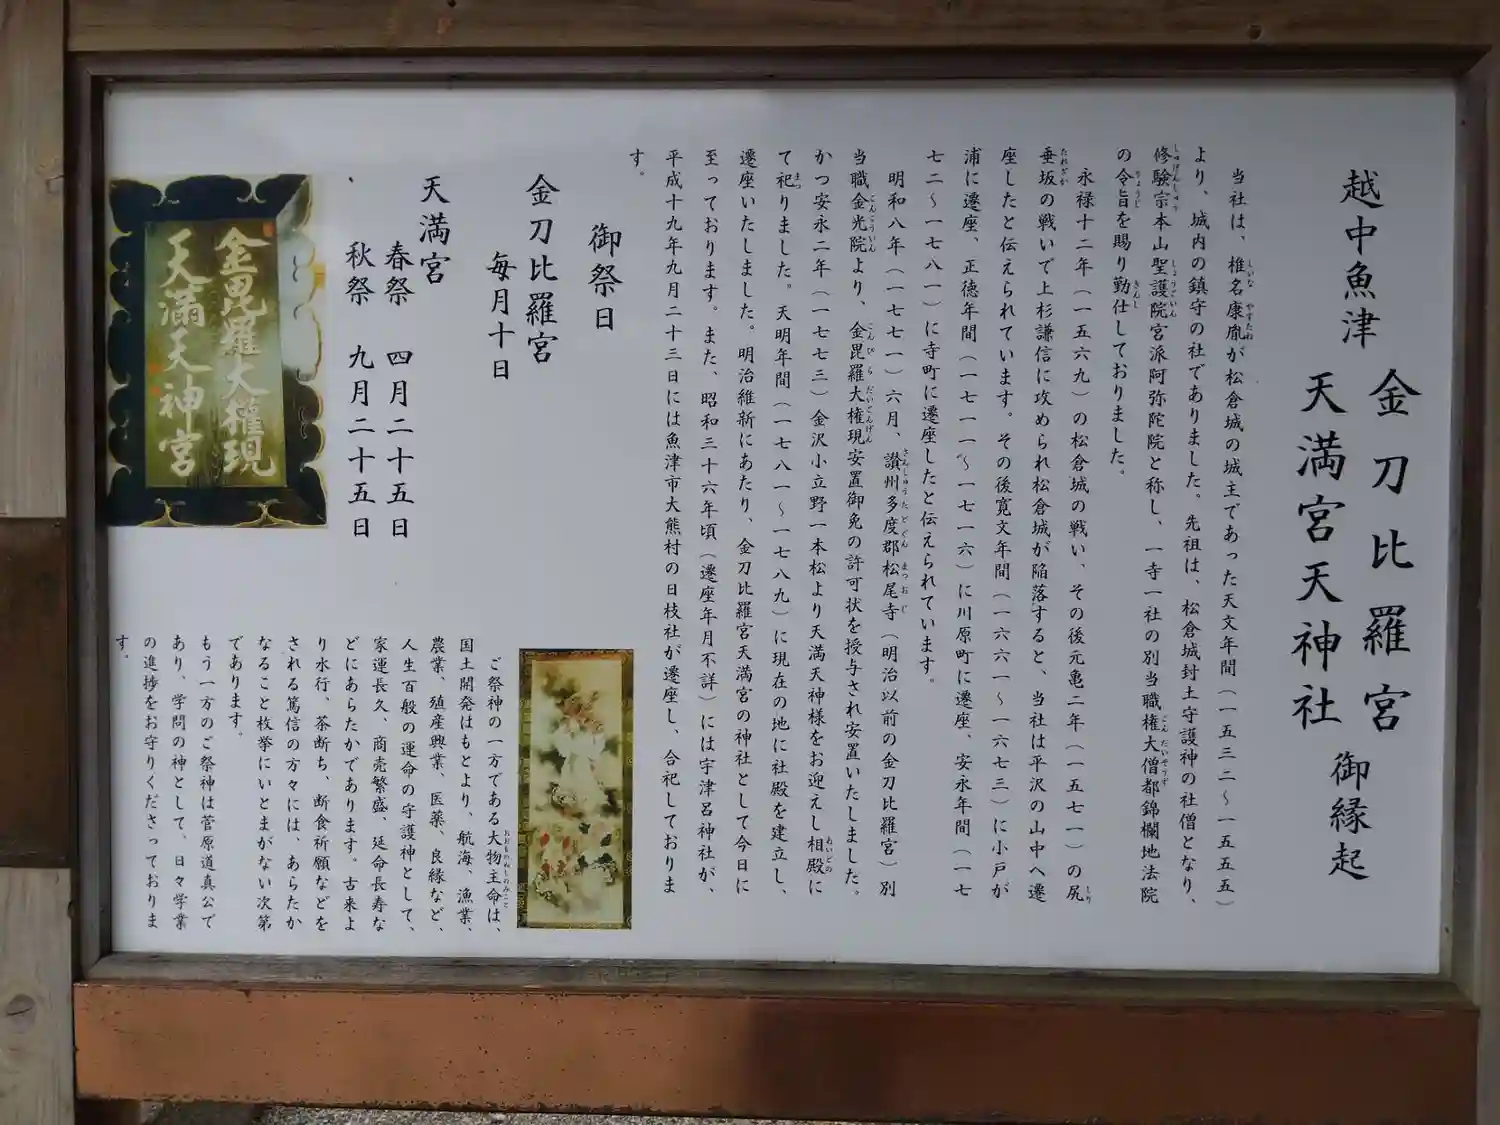 越中魚津
金刀比羅宮
天満宮天神社
御縁起
当社は、椎名康胤が松倉城の城主であった天文年間(一五三二〜一五五五)
より、城内の鎮守の社でありました。先祖は、松倉城封土守護神の社僧となり、
修験宗本山聖護院宮派阿弥陀院と称し、一寺一社の別当職権大僧都錦欄地法院
の令旨を賜り勤仕しておりました。
永禄十二年(一五六九)の松倉城の戦い、その後元亀二年(一五七一)の尻
垂坂の戦いで上杉謙信に攻められ松倉城が陥落すると、当社は平沢の山中へ遷
座したと伝えられています。その後寛文年間(一六六一〜一六七三)に小戸が
浦に遷座、正徳年間(一七一一〜一七一六)に川原町に遷座、安永年間(一七
七二〜一七八一)に寺町に遷座したと伝えられています。
明和八年(一七七一)六月、讃州多度郡松尾寺(明治以前の金刀比羅宮)別
当職金光院より、金毘羅大権現安置御免の許可状を授与され安置いたしました。
かつ安永二年(一七七三)金沢小立野一本松より天満天神様をお迎えし相殿に
て祀りました。天明年間(一七八一〜一七八九)に現在の地に社殿を建立し、
遷座いたしました。明治維新にあたり、金刀比羅宮天満宮の神社として今日に
至っております。また、昭和三十六年頃(遷座年月不詳)には宇津呂神社が、
平成十九年九月二十三日には魚津市大熊村の日枝社が遷座し、合祀しておりま
す。
御祭日
金刀比羅宮
毎月十日
天満宮
春祭 四月二十五日
秋祭 九月二十五日
金毘羅大權現
天滿天神宮
ご祭神の一方である大物主命は、
国土開発はもとより、航海、漁業、
農業、殖産興業、医薬、良縁など、
人生百般の運命の守護神として、
家運長久、商売繁盛、延命長寿な
どにあらたかであります。古来よ
り水行、茶断ち、断食祈願などを
される篤信の方々には、あらたか
なること枚挙にいとまがない次第
であります。
もう一方のご祭神は菅原道真公で
あり、学問の神として、日々学業
の進捗をお守りくださっておりま
す。